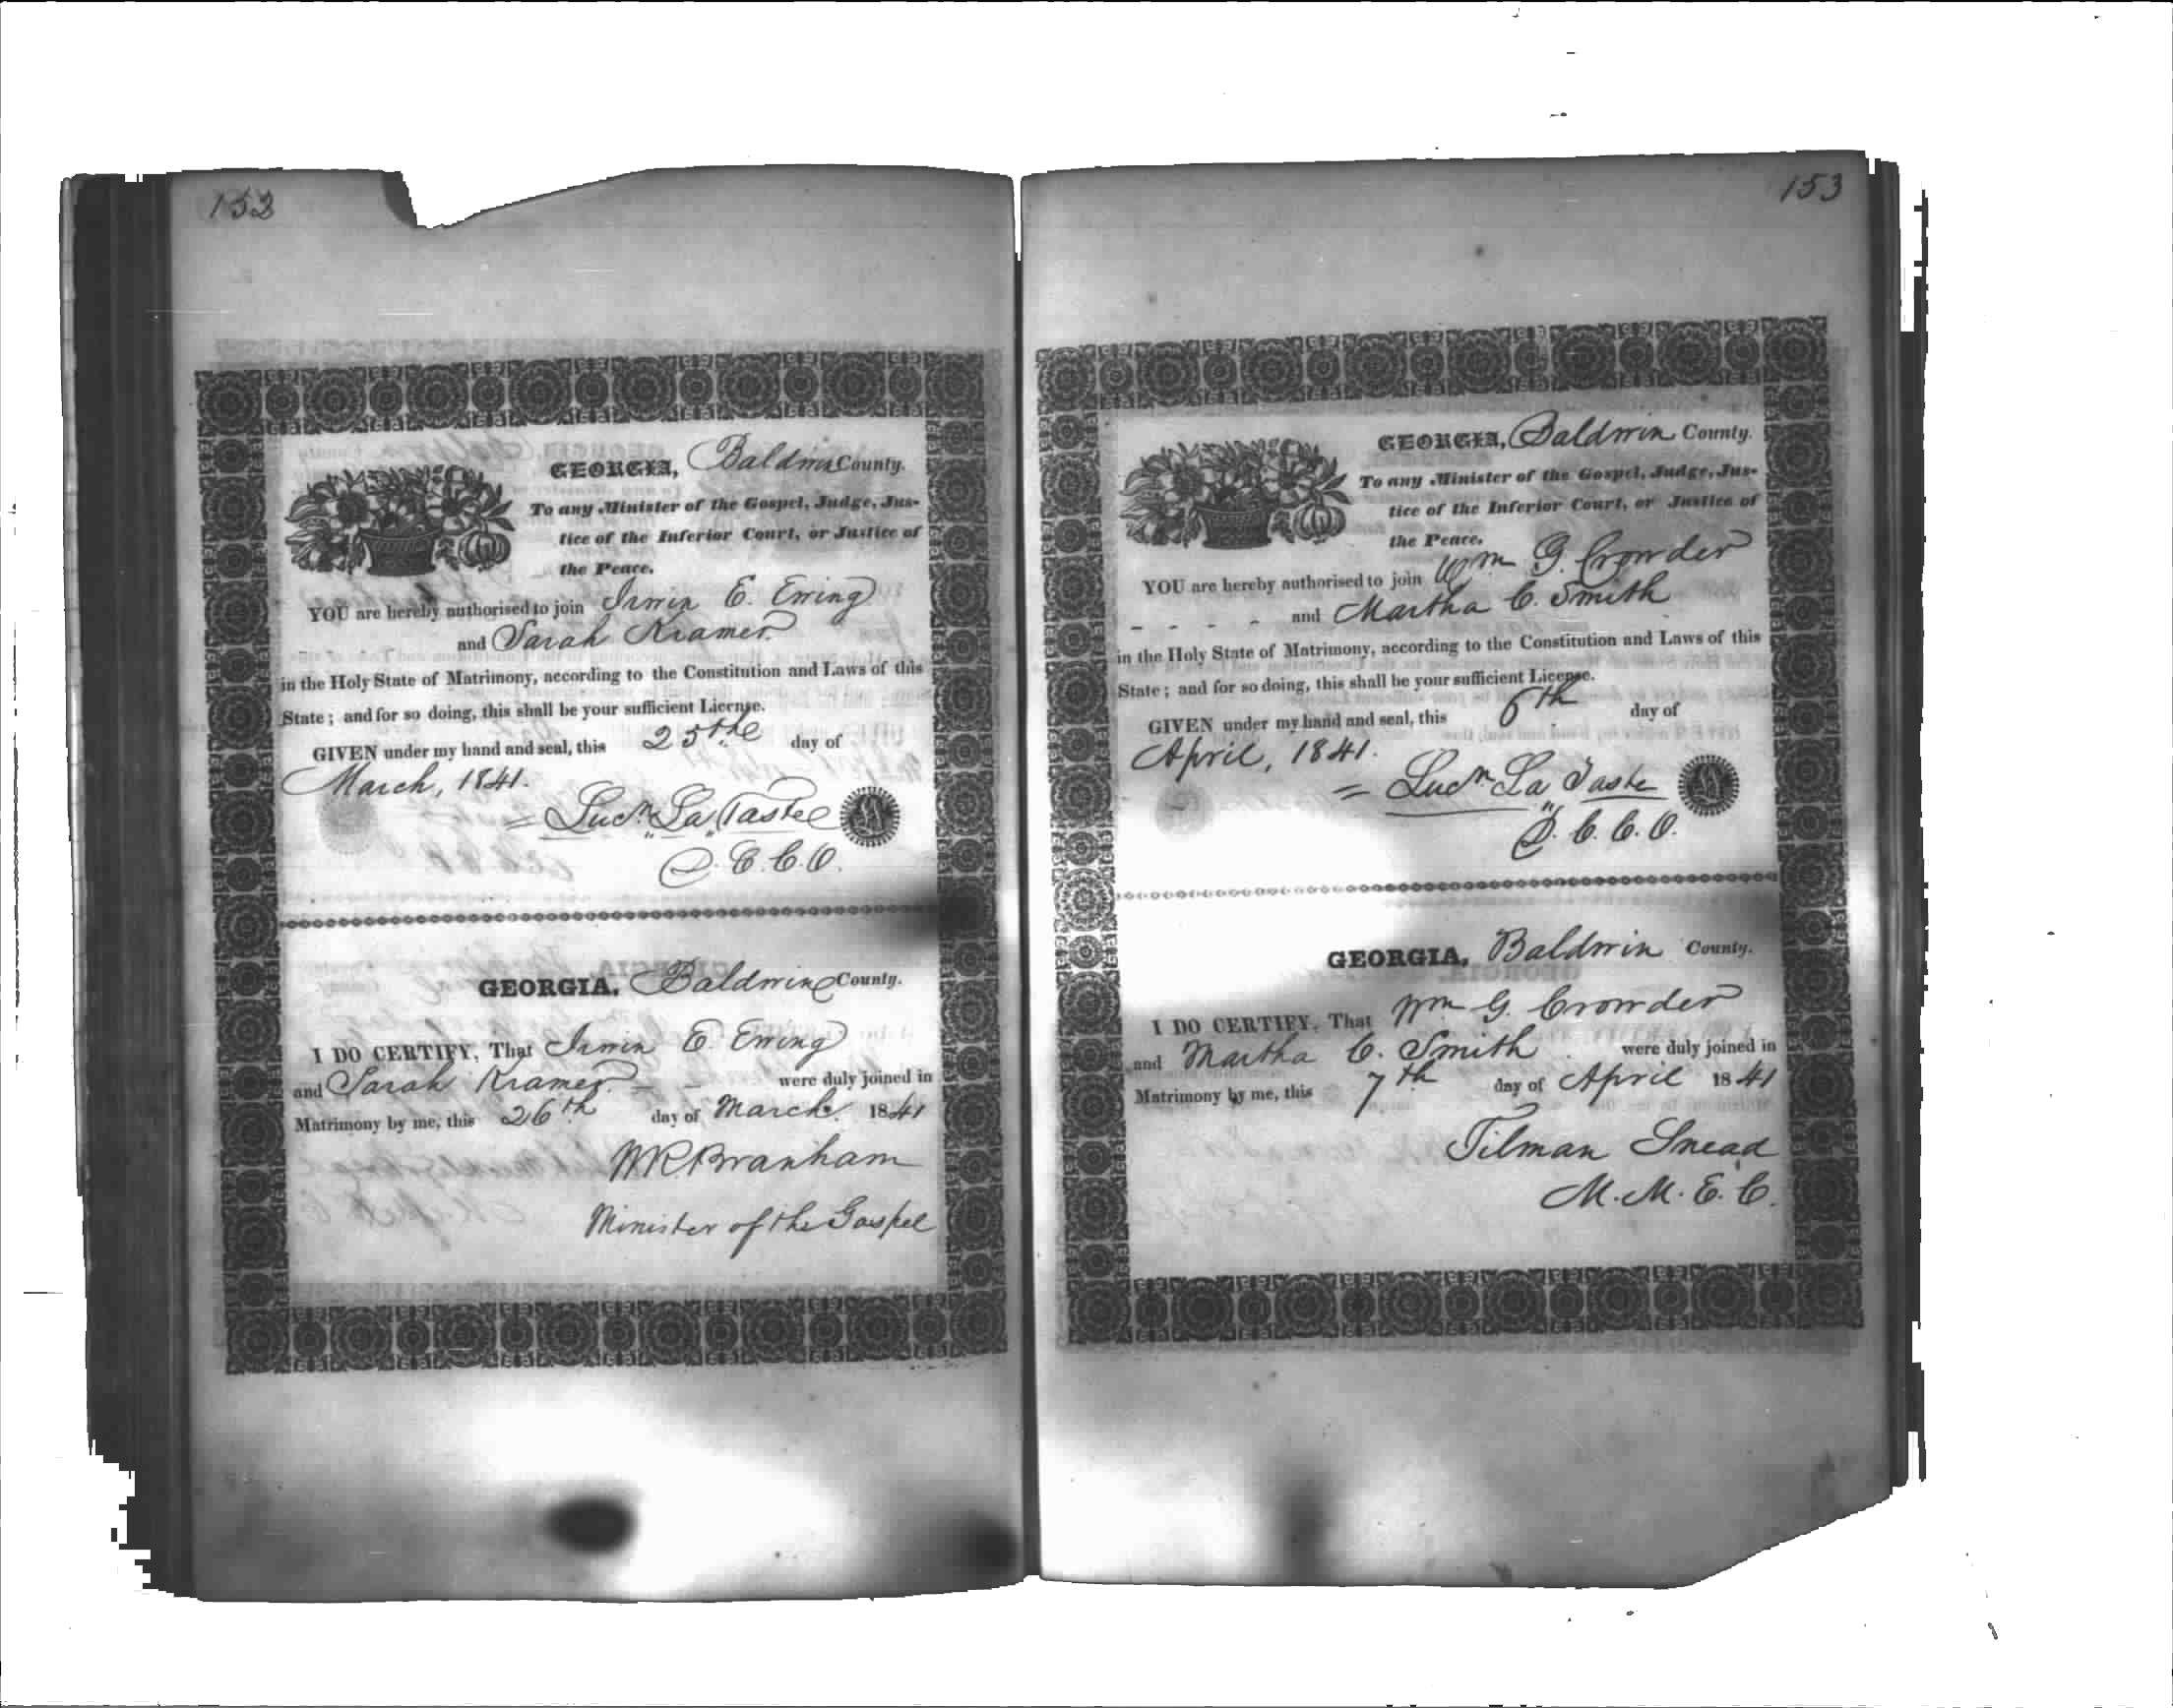 152
GEORGIA, Baldwin County.
To any Minister of the Gospel, Judge, Jus-
tice of the Inferior Court, or Justice of
the Peace.
YOU are hereby authorised to join Irwin E. Ewing
and Sarah Kramer
in the Holy State of Matrimony, according to the Constitution and Laws of this
State; and for so doing, this shall be your sufficient License.
GIVEN under my hand and seal, this 25the day of
March, 1841.
= Lucn. La Taste
D. C. C. O.
GEORGIA, Baldwin County.
I DO CERTIFY, That Irwin E. Ewing
and Sarah Kramer - - were duly joined in
Matrimony by me, this 26th day of March 1841
W R Branham
Minister of the Gospel
153
GEORGIA, Baldwin County.
To any Minister of the Gospel, Judge, Jus-
tice of the Inferior Court, or Justice of
the Peace.
YOU are hereby authorised to join Wm G. Crowder
- - - - and Martha C. Smith
in the Holy State of Matrimony, according to the Constitution and Laws of this
State; and for so doing, this shall be your sufficient License.
GIVEN under my hand and seal, this 6th day of
April, 1841.
= Lucn La Taste
D. C. C. O.
GEORGIA, Baldwin County.
I DO CERTIFY, That Wm G. Crowder
and Martha C. Smith were duly joined in
Matrimony by me, this 7th day of April 1841
Tilman Snead
M. M. E. C.